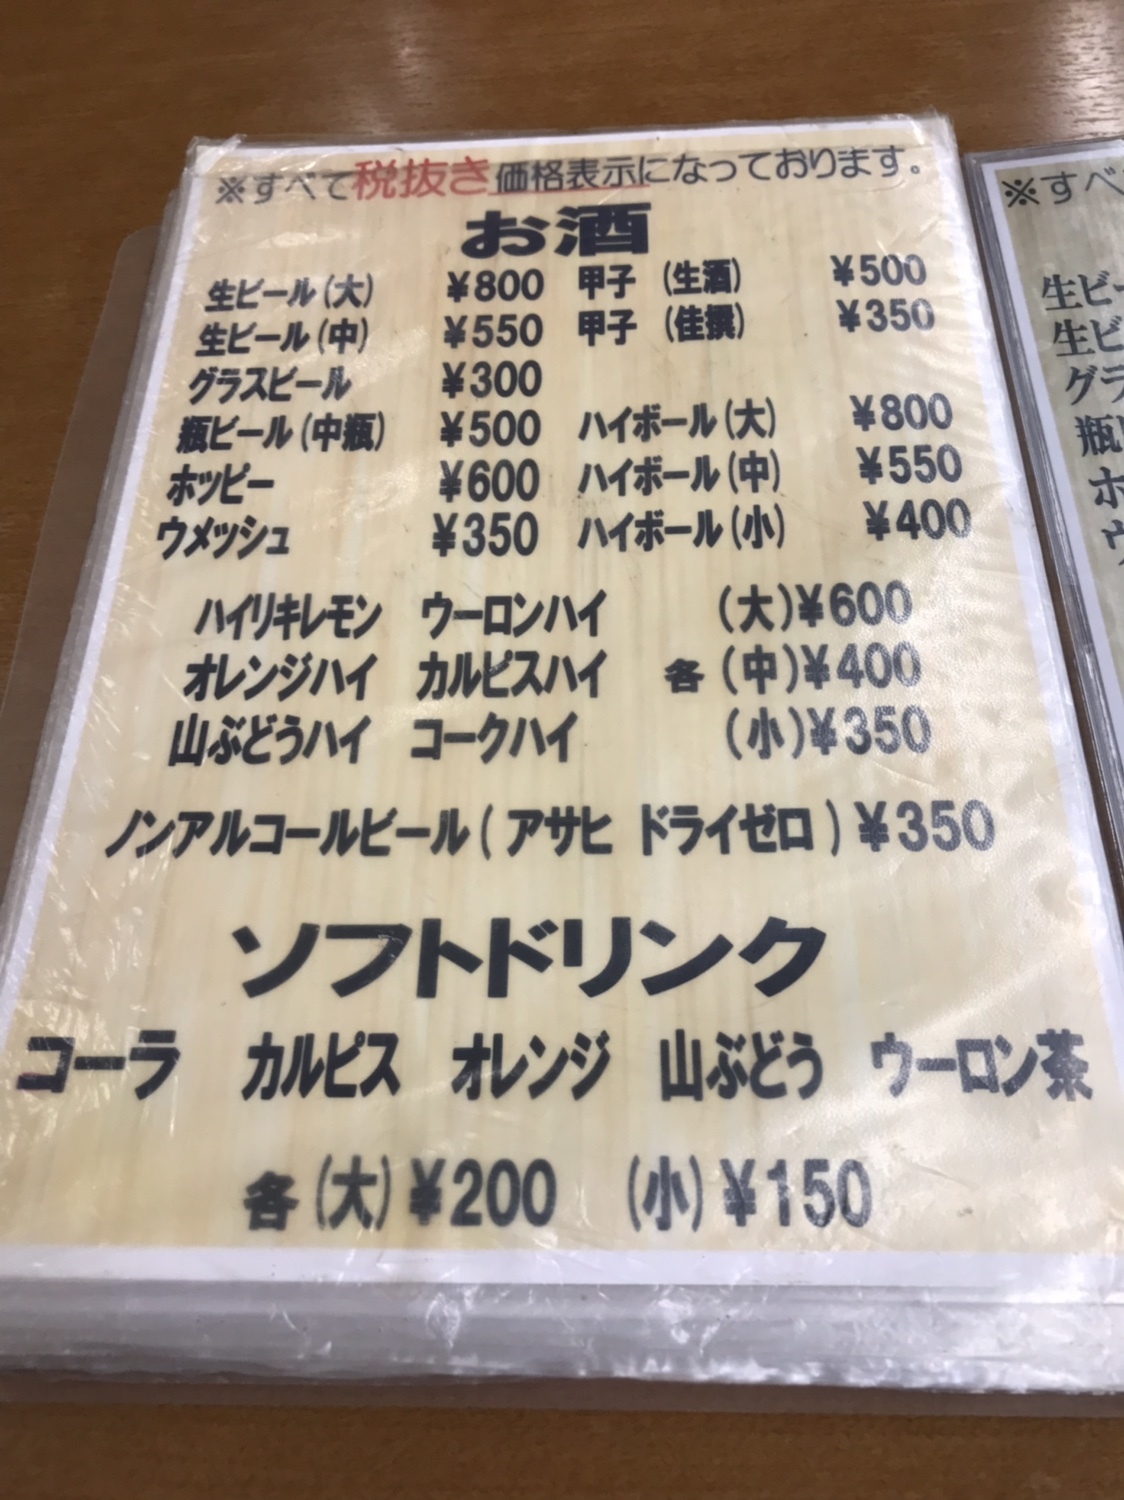 ※すべて税抜き価格表示になっております。
お酒
生ビール(大) ¥800 甲子 (生酒) ¥500
生ビール(中) ¥550 甲子 (佳撰) ¥350
グラスビール ¥300
瓶ビール(中瓶) ¥500 ハイボール(大) ¥800
ホッピー ¥600 ハイボール(中) ¥550
ウメッシュ ¥350 ハイボール(小) ¥400
ハイリキレモン ウーロンハイ (大)¥600
オレンジハイ カルピスハイ 各(中)¥400
山ぶどうハイ コークハイ (小)¥350
ノンアルコールビール(アサヒ ドライゼロ)¥350
ソフトドリンク
コーラ カルピス オレンジ 山ぶどう ウーロン茶
各(大)¥200 (小)¥150
※すべ
生ビー
生ビ
グラ
瓶
ホ
ウ